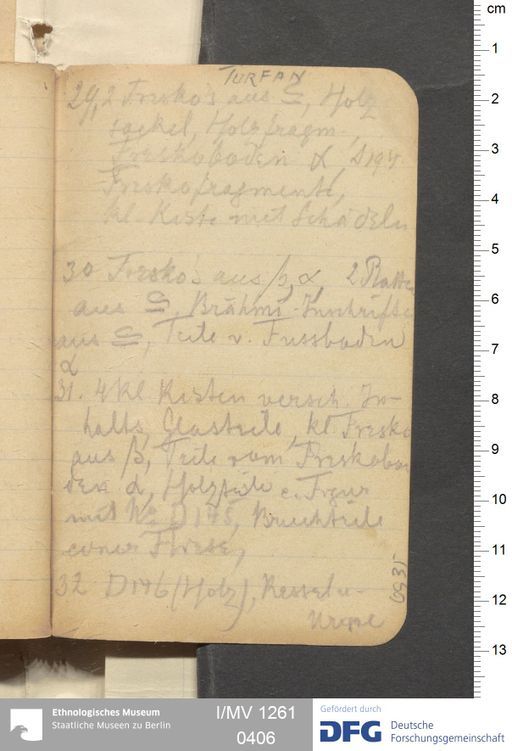 TURFAN
29, 2 Fresko's aus ⊆, Holz
sockel, Holzfragm.,
Freskoboden α,
Freskofragmente,
kl. Kiste mit Schädeln
30 Fresko's aus β, α, 2 Platten
aus ⊆, Brāhmī-Inschriften
aus ⊆, Teile v. Fussboden
α
31. 4 kl Kisten versch. In-
halts, Glasteile, kl Fresko
aus β, Teile vom Freskobo
den α, Holzfüße e. Figur
mit No D 175, Bruchteile
einer Fliese,
32 D 176 (Holz), Kessel u-
Urne
(993)
cm
1
2
3
4
5
6
7
8
9
10
11
12
13
Ethnologisches Museum
Staatliche Museen zu Berlin
I/MV 1261
0406
Gefördert durch
DFG Deutsche
Forschungsgemeinschaft